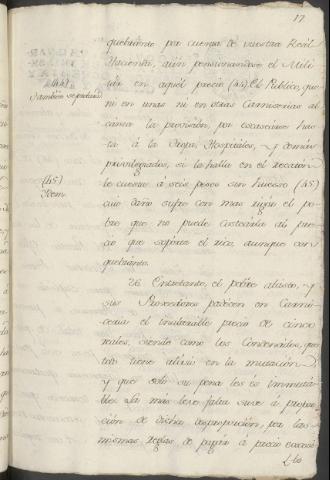 17
quebranto por cuenta de vuestra Real
Hacienda, aún pensionandose el Mili-
tár en aquel precio (44) El Publico, que
(44)
Tambien se prueba
ni en unas ni en otras Carnicerias al-
cánza la provision, por escasearse has-
ta á la Tropa, Hospitales, y demás
privilegiados, si la halla en el recatón
(45)
Idem
le cuesta á seis pesos sin hueso (45)
cuio daño sufre con mas rigór el po-
bre que no puede costearla al pre-
cio que soporta el rico, aunque con
quebranto.
26. Entretanto, el pobre abasto, y
sus Proveedores padecen en Carni-
ceria el inalterable precio de cinco
reales, siendo como los Condenados, que
no tiene alivio en la mutación,
y que solo su pena les és inmuta-
ble. La mas leve falta sube á propor-
ción de dicha desproporción, por las
mismas reglas de pagár á precio excesi-